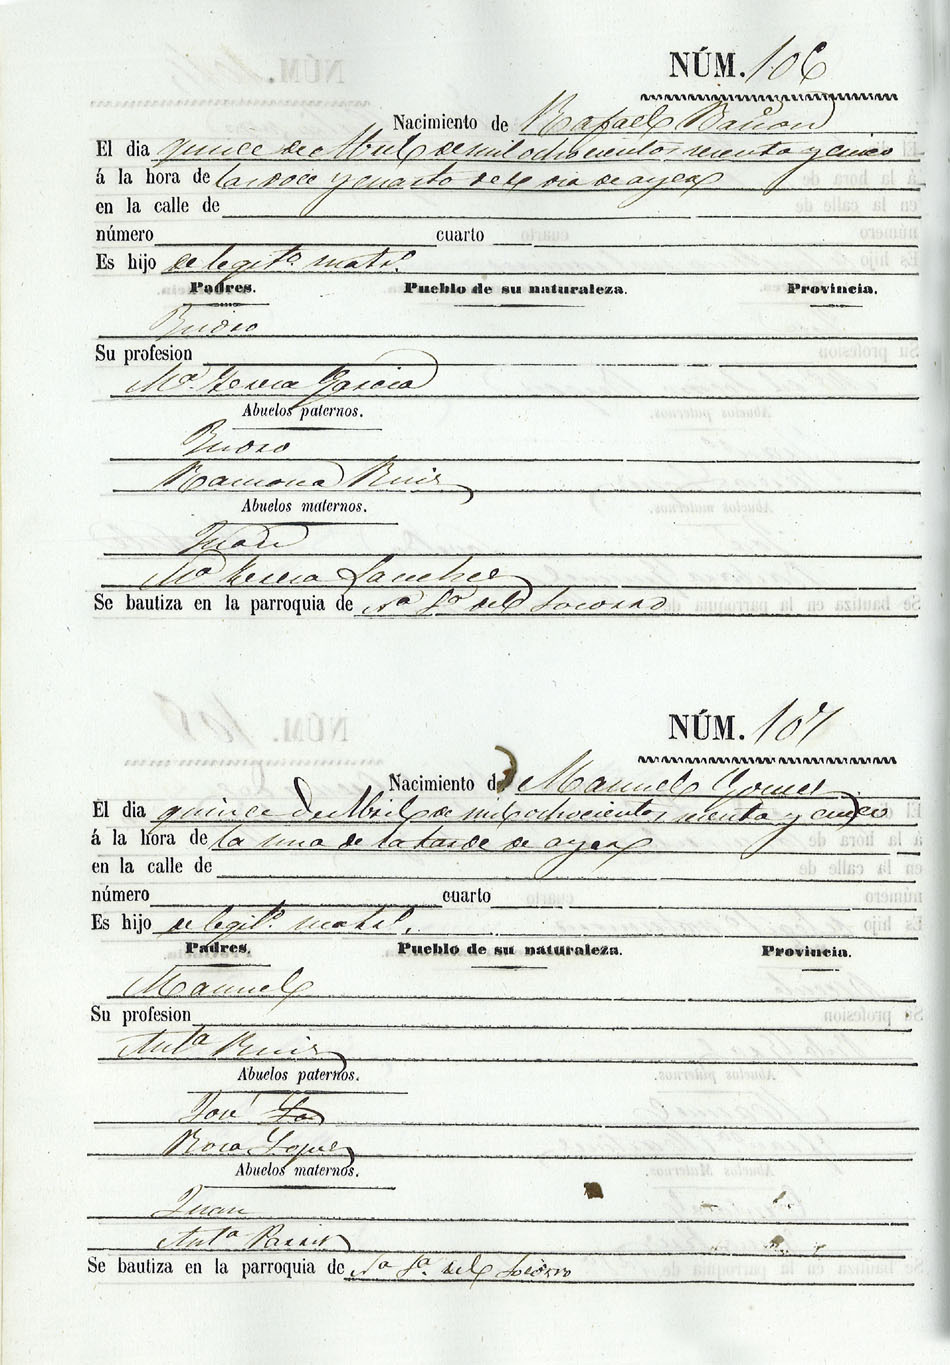 NÚM. 106
Nacimiento de Rafael Bañon
El dia quince de Abril de mil ochocientos sesenta y cinco
á la hora de las doce y cuarto del dia de ayer
en la calle de
número cuarto
Es hijo de legitª matº
Padres. Pueblo de su naturaleza. Provincia.
Su profesion
Mª Teresa Garcia
Abuelos paternos.
Ramona Ruiz
Abuelos maternos.
Juan
Mª Teresa Sanchez
Se bautiza en la parroquia de Nª Sª del Socorro
NÚM. 107
Nacimiento de Manuel Gomez
El dia quince de Abril de mil ochocientos sesenta y cinco
á la hora de la una de la tarde de ayer
en la calle de
número cuarto
Es hijo de legitº matº
Padres. Pueblo de su naturaleza. Provincia.
Manuel
Su profesion
Antª Ruiz
Abuelos paternos.
José
Rosa Lopez
Abuelos maternos.
Juan
Antª
Se bautiza en la parroquia de Nª Sª del Socorro